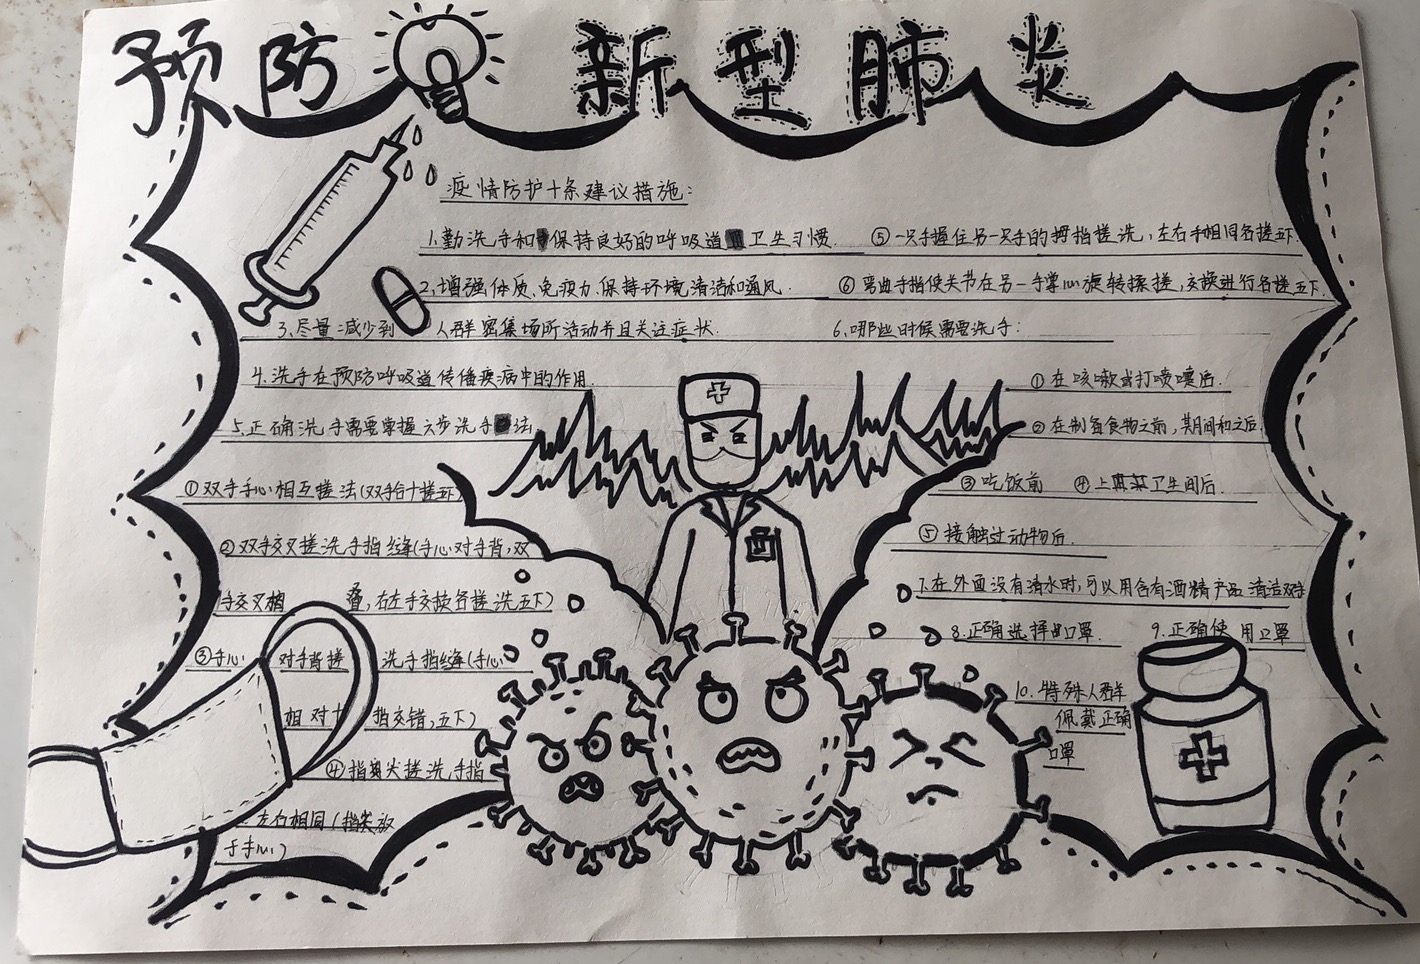 预防 新型肺炎
疫情防护十条建议措施:
1.勤洗手和保持良好的呼吸道卫生习惯.
2.增强体质、免疫力、保持环境清洁和通风.
3.尽量减少到人群密集场所活动并且关注症状.
4.洗手在预防呼吸道传播疾病中的作用.
5.正确洗手需要掌握六步洗手法
①双手手心相互搓法(双手合十搓五下)
②双手交叉搓洗手指缝(手心对手背,双
手交叉相叠,右左手交换各搓洗五下)
③手心对手背搓洗手指缝(手心
相对十指交错,五下)
④指尖搓洗手指
左右相同(指尖放
于手心)
⑤一只手握住另一只手的拇指搓洗,左右手相同各搓五下.
⑥弯曲手指使关节在另一手掌心旋转揉搓,交换进行各搓五下.
6.哪些时候需要洗手:
①在咳嗽或打喷嚏后.
②在制备食物之前,期间和之后.
③吃饭前 ④上卫生间后.
⑤接触过动物后.
7.在外面没有清水时,可以用含有酒精产品清洁双手
8.正确选择口罩. 9.正确使用口罩
10.特殊人群
佩戴正确
口罩